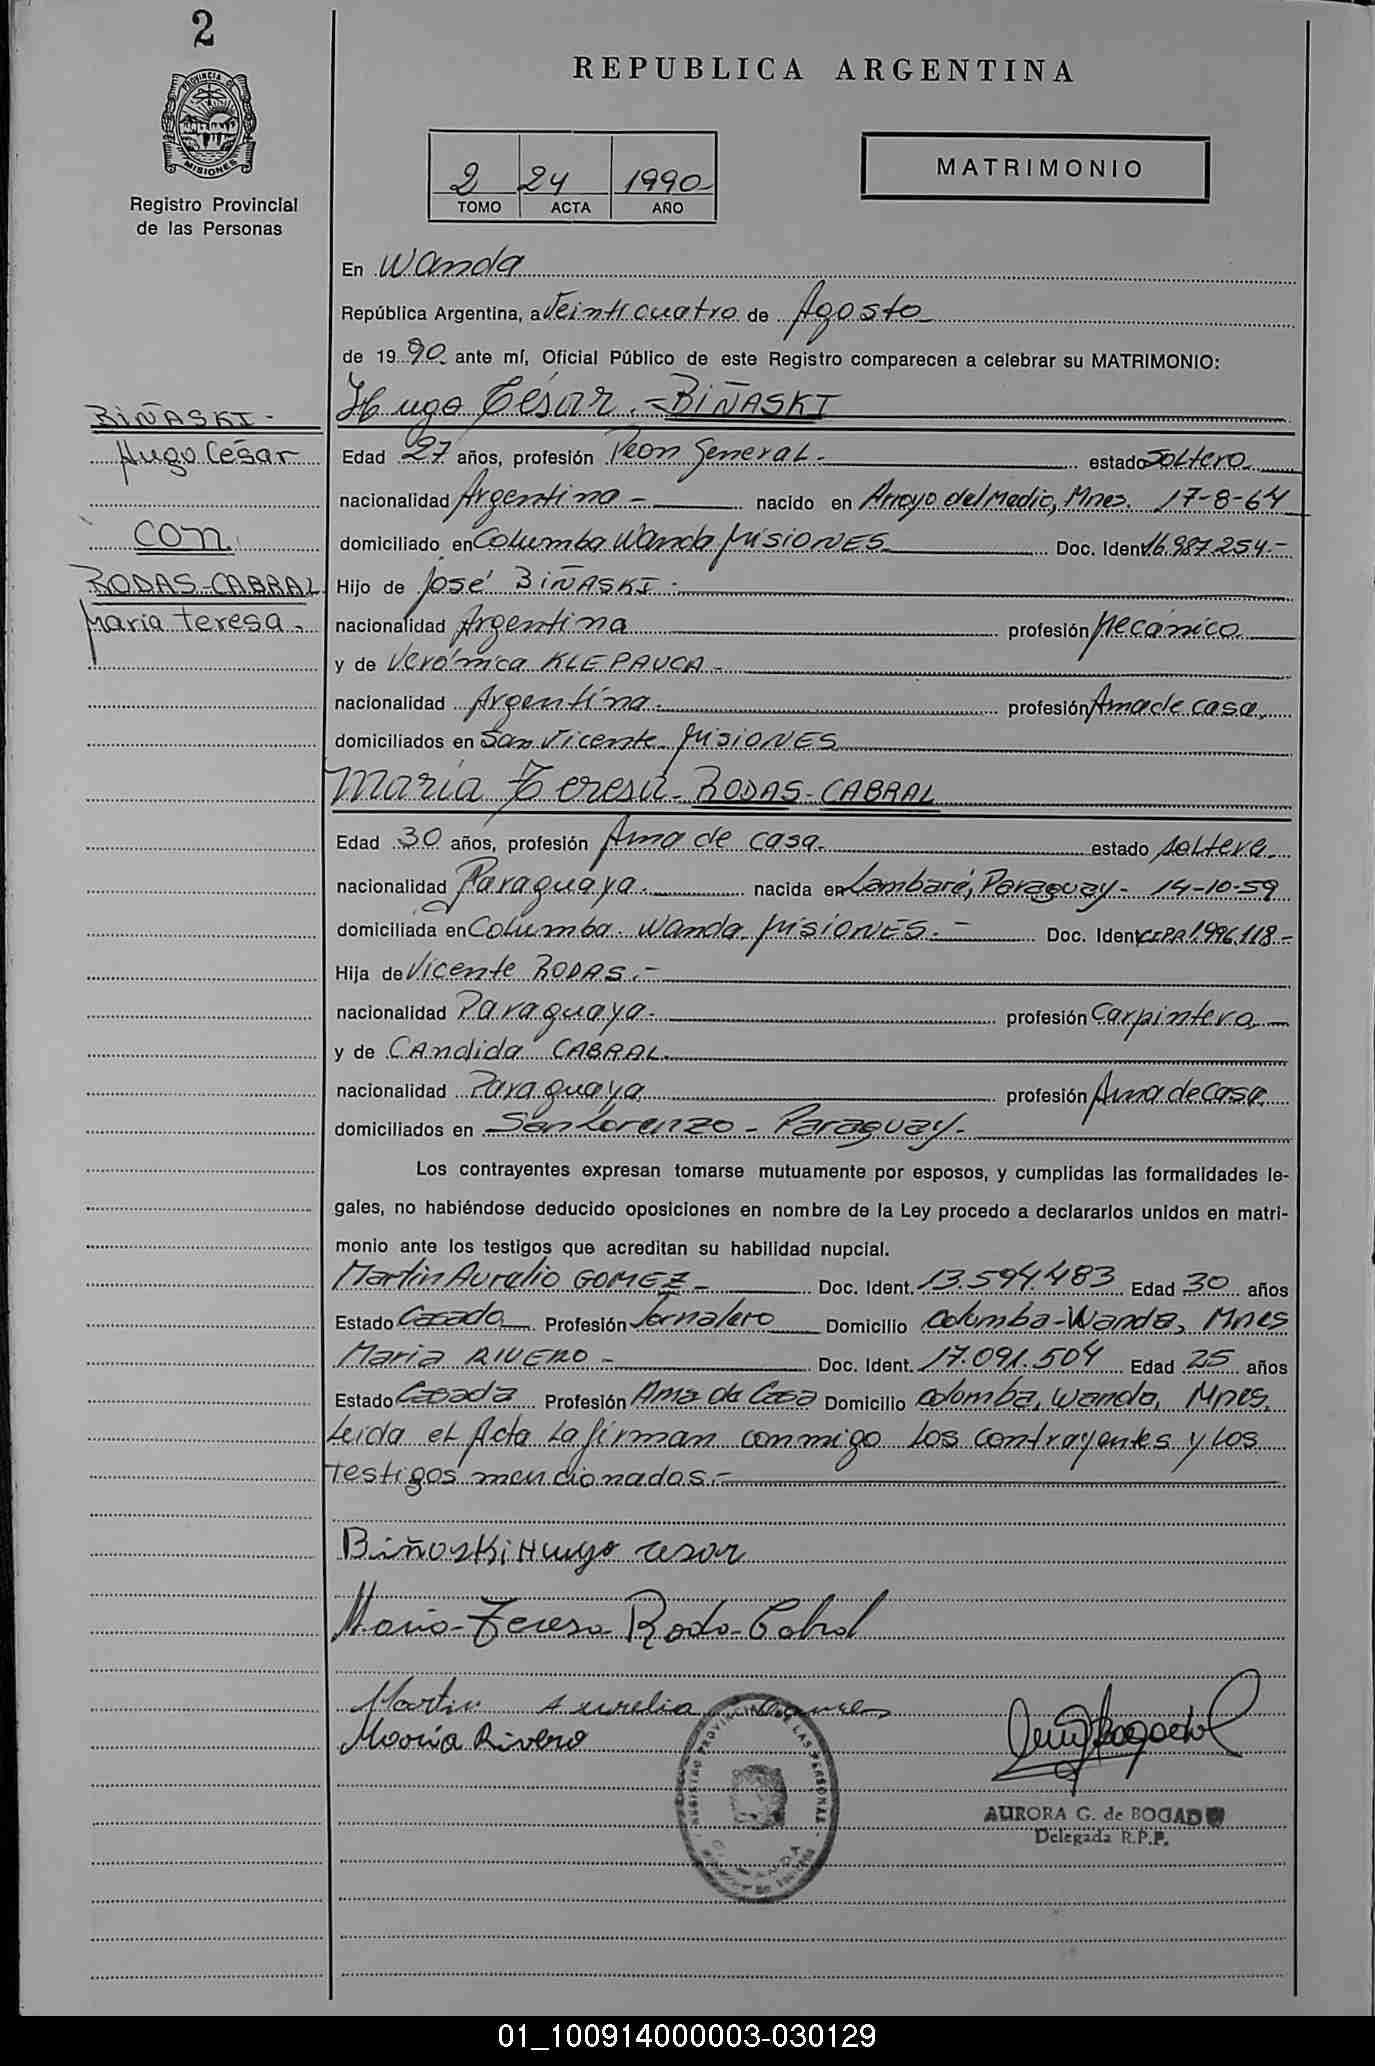 2
PROVINCIA DE
MISIONES
Registro Provincial
de las Personas
REPUBLICA ARGENTINA
2 24 1990
TOMO ACTA AÑO
MATRIMONIO
En Wanda
República Argentina, a Veinticuatro de Agosto
de 1990 ante mí, Oficial Público de este Registro comparecen a celebrar su MATRIMONIO:
Hugo César.- BIÑASKI
BIÑASKI-
Hugo César
con
RODAS-CABRAL
María Teresa.
Edad 27 años, profesión Peon General. estado Soltero
nacionalidad Argentina - nacido en Arroyo del Medio, Mnes. 17-8-64
domiciliado en Columba Wanda Misiones Doc. Ident. 16.987.254.-
Hijo de José BIÑASKI.
nacionalidad Argentina profesión Mecánico
y de Verónica KLEPAUCA-
nacionalidad Argentina. profesión Ama de casa.
domiciliados en San Vicente Misiones
María Teresa- RODAS-CABRAL
Edad 30 años, profesión Ama de casa. estado soltera.
nacionalidad Paraguaya. nacida en Lambaré, Paraguay- 14-10-59
domiciliada en Columba. Wanda. Misiones.- Doc. Ident. CIPA 1.996.118.-
Hija de Vicente RODAS.-
nacionalidad Paraguaya. profesión Carpintero
y de Candida CABRAL.
nacionalidad Paraguaya profesión Ama de Casa
domiciliados en San Lorenzo - Paraguay.
Los contrayentes expresan tomarse mutuamente por esposos, y cumplidas las formalidades le-
gales, no habiéndose deducido oposiciones en nombre de la Ley procedo a declararlos unidos en matri-
monio ante los testigos que acreditan su habilidad nupcial.
Martin Aurelio GOMEZ- Doc. Ident. 13.594.483 Edad 30 años
Estado Casado Profesión Jornalero Domicilio Colomba-Wanda, Mnes
Maria RIVERO- Doc. Ident. 17.091.504 Edad 25 años
Estado Casada Profesión Ama de Casa Domicilio Colomba, Wanda, Mnes.
Leida el Acta la firman conmigo los contrayentes y los
testigos mencionados.-
Biñaski Hugo cesar
Maria-Teresa Roda-Cabral
Martin Aurelio Gomez
María Rivero
REGISTRO PROVINCIAL DE LAS PERSONAS
WANDA
AURORA G. de BOGADO
Delegada R.P.P.
01_100914000003-030129